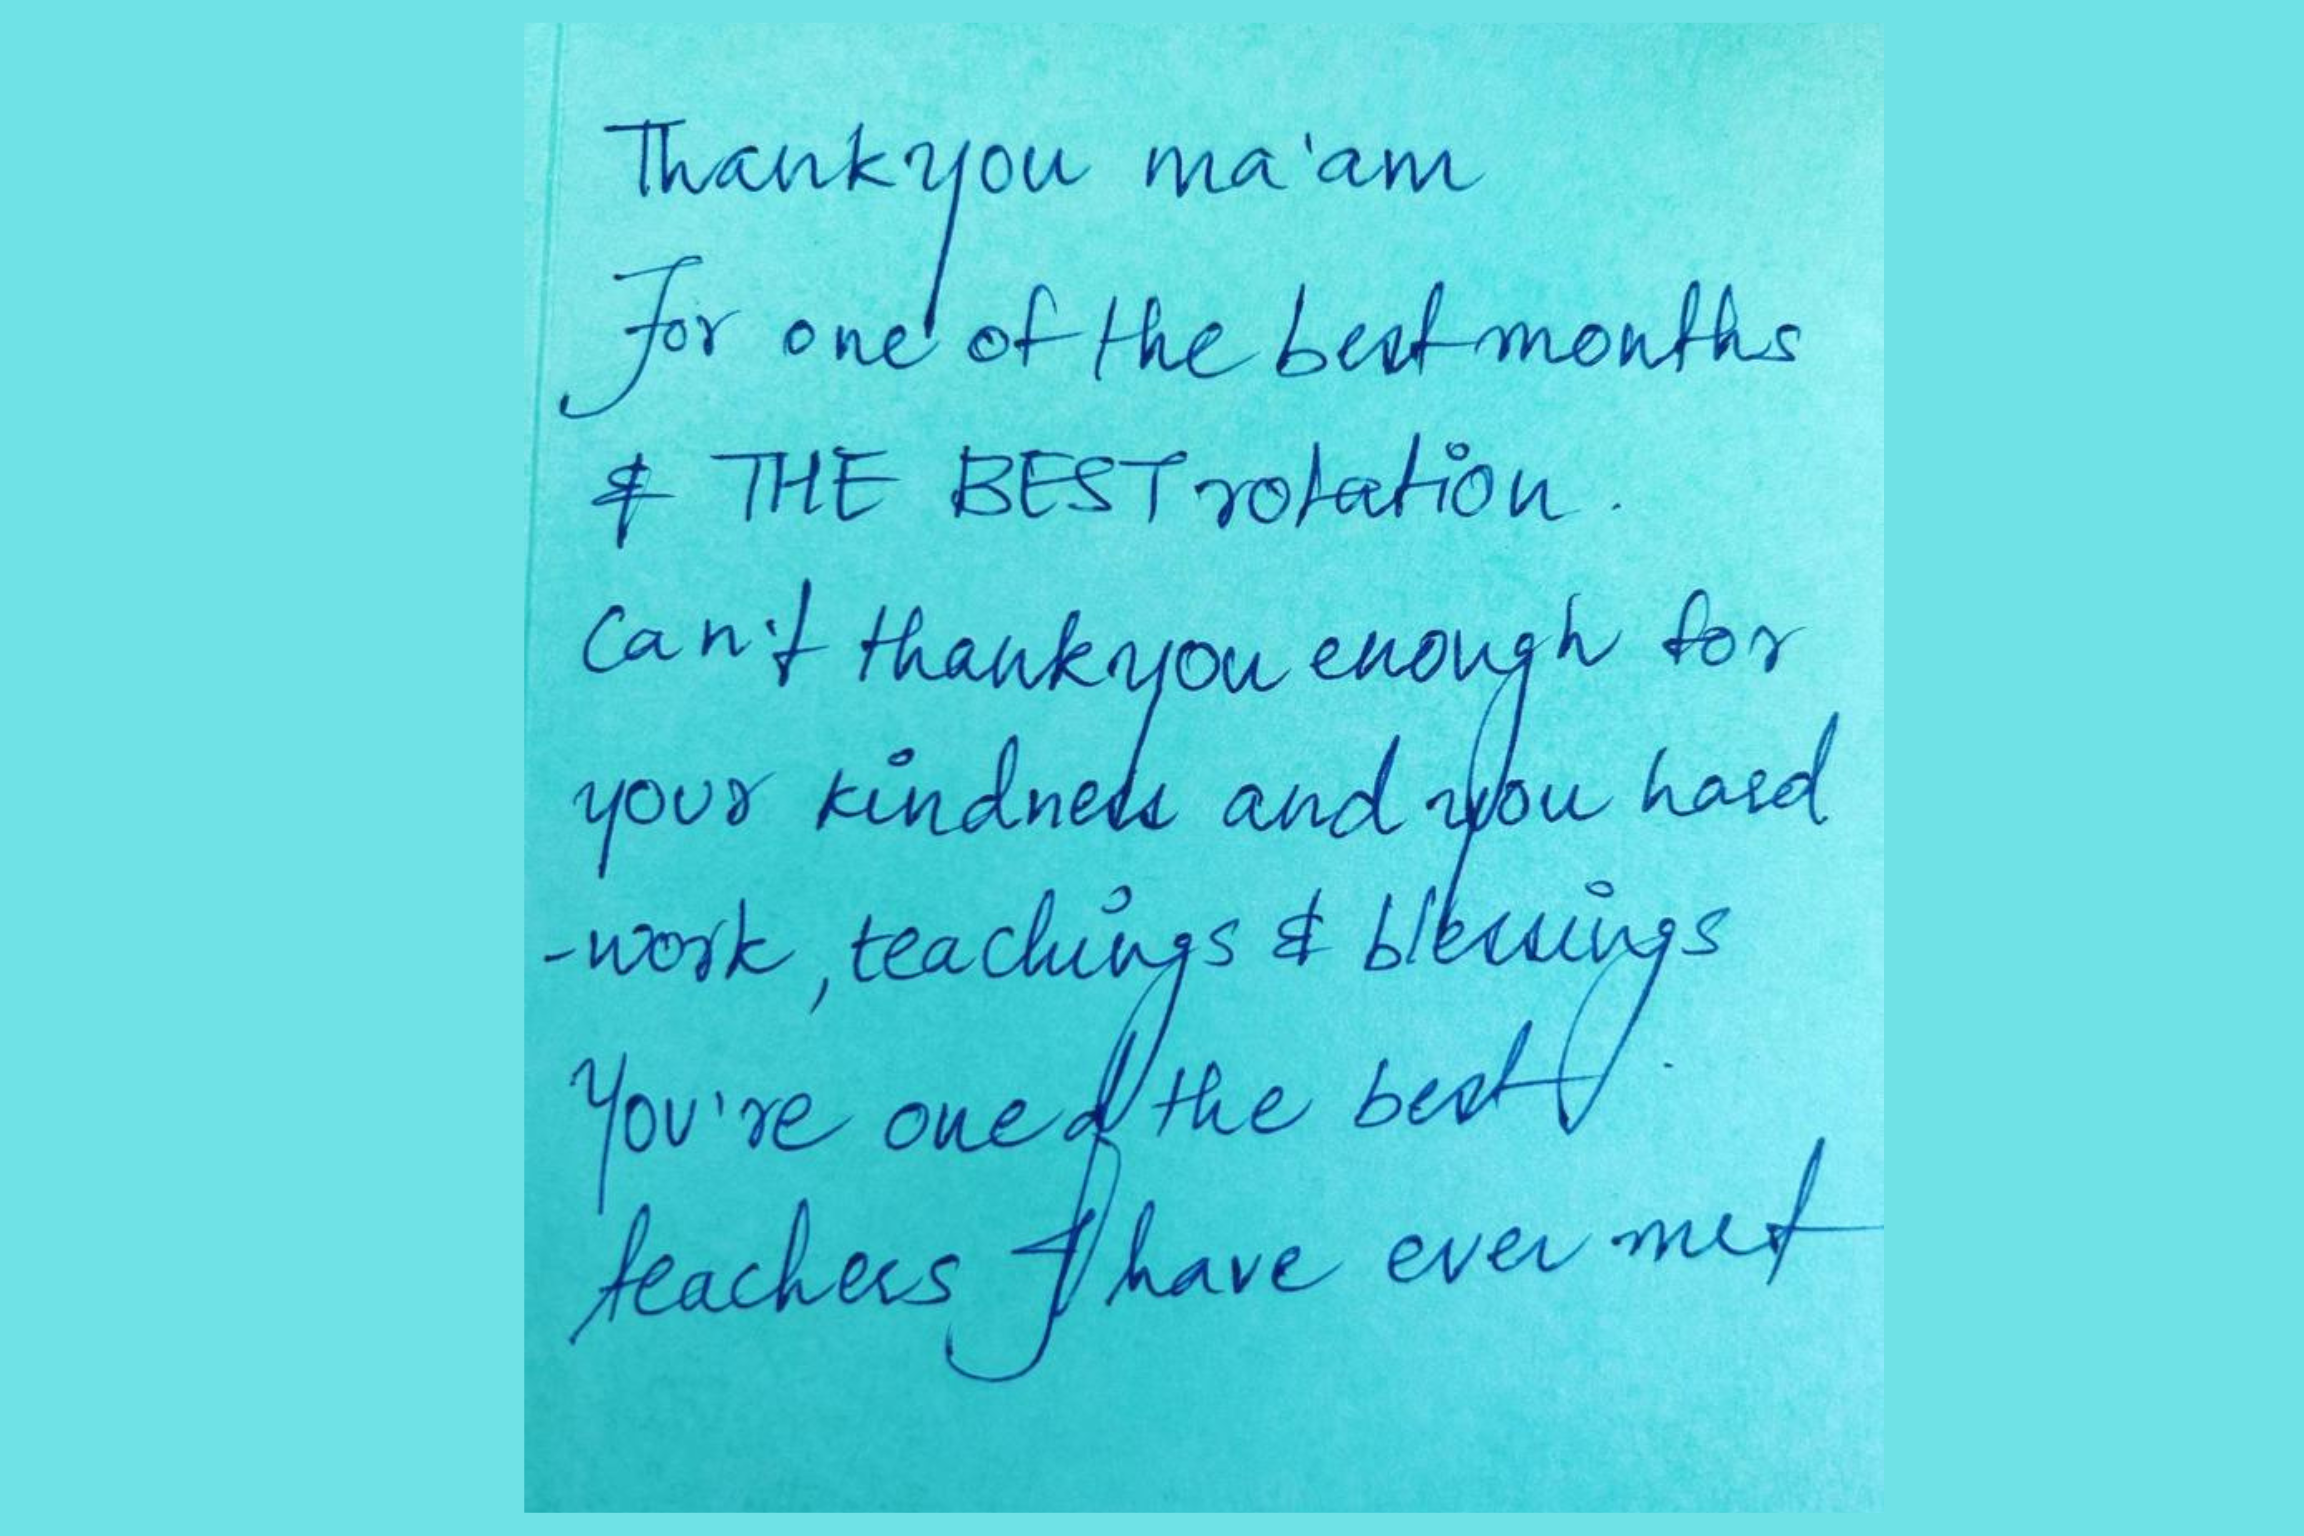 Thank you ma'am
For one of the best months
& THE BEST rotation.
Can't thank you enough for
your kindness and you hard
-work, teachings & blessings.
You're one of the best
teachers I have ever met